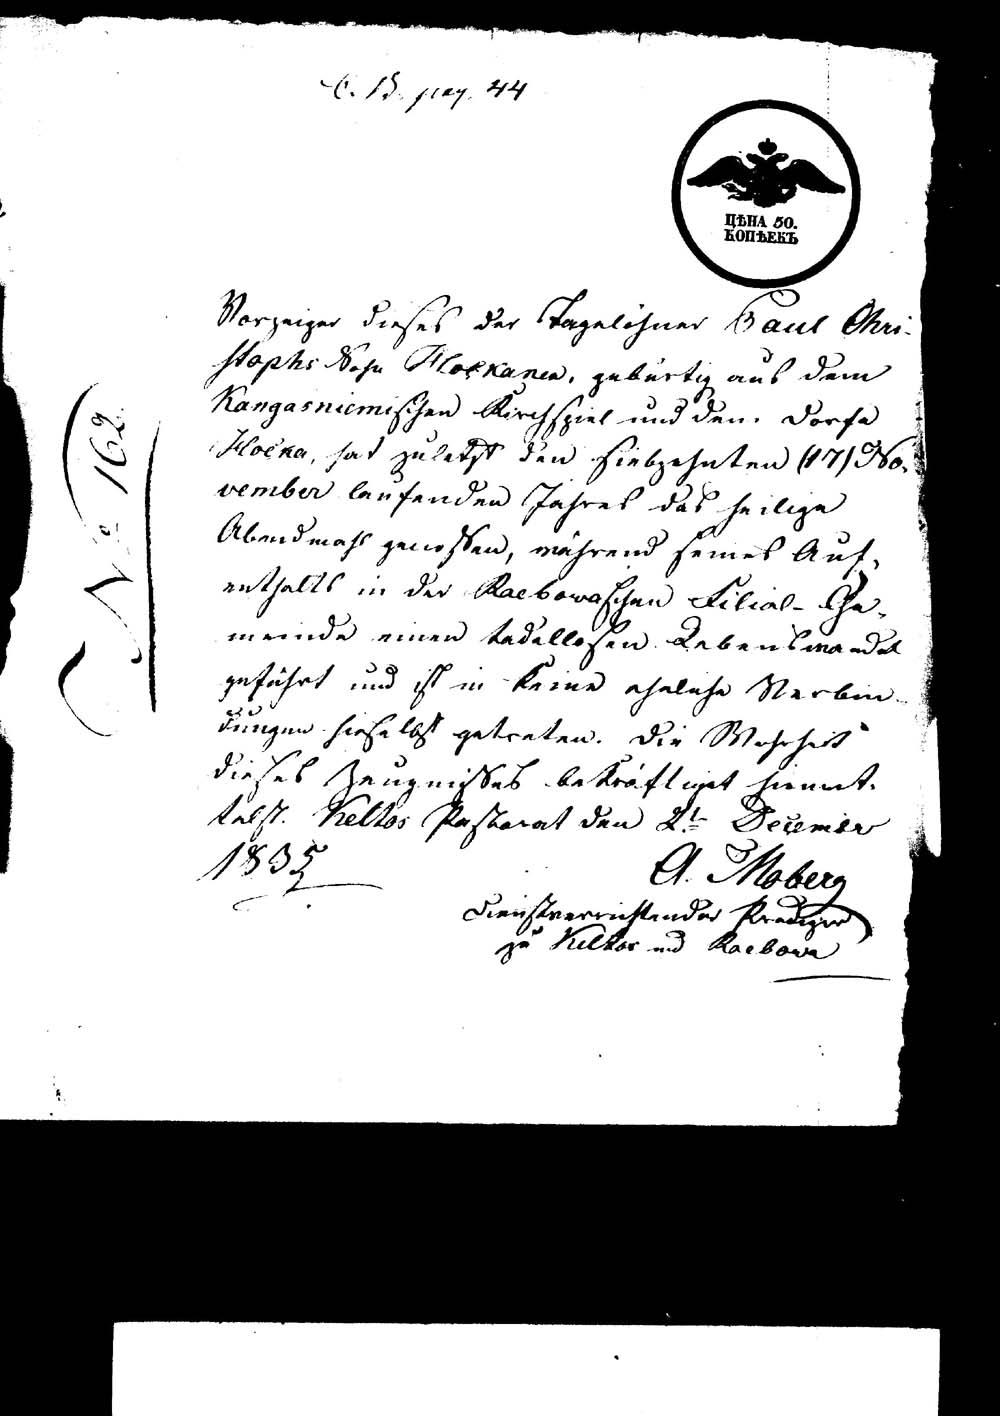 C. B. pag. 44
ЦѢНА 50.
КОПѢЕКЪ
No 162.
Vorzeiger dieses der Tagelöhner Paul Chri-
stophs Sohn Hockanen, gebürtig aus dem
Kangasniemischen Kirchspiel und dem Dorfe
Hocka, hat zuletzt den siebzehnten (17) No-
vember laufenden Jahres das heilige
Abendmahl genossen, während seines Auf-
enthalts in der Raebowaschen Filial-Ge-
meinde einen tadellosen Lebenswandel
geführt und ist in keine eheliche Verbin-
dungen hieselbst getreten. Die Wahrheit
dieses Zeugnisses bekräftiget hiemit-
telst. Keltos Pastorat den 2t December
1835
A. Moberg
dienstverrichtender Prediger
zu Keltos und Raebowa